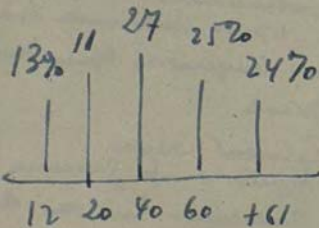 13% 11 27 25% 24%
12 20 40 60 +61